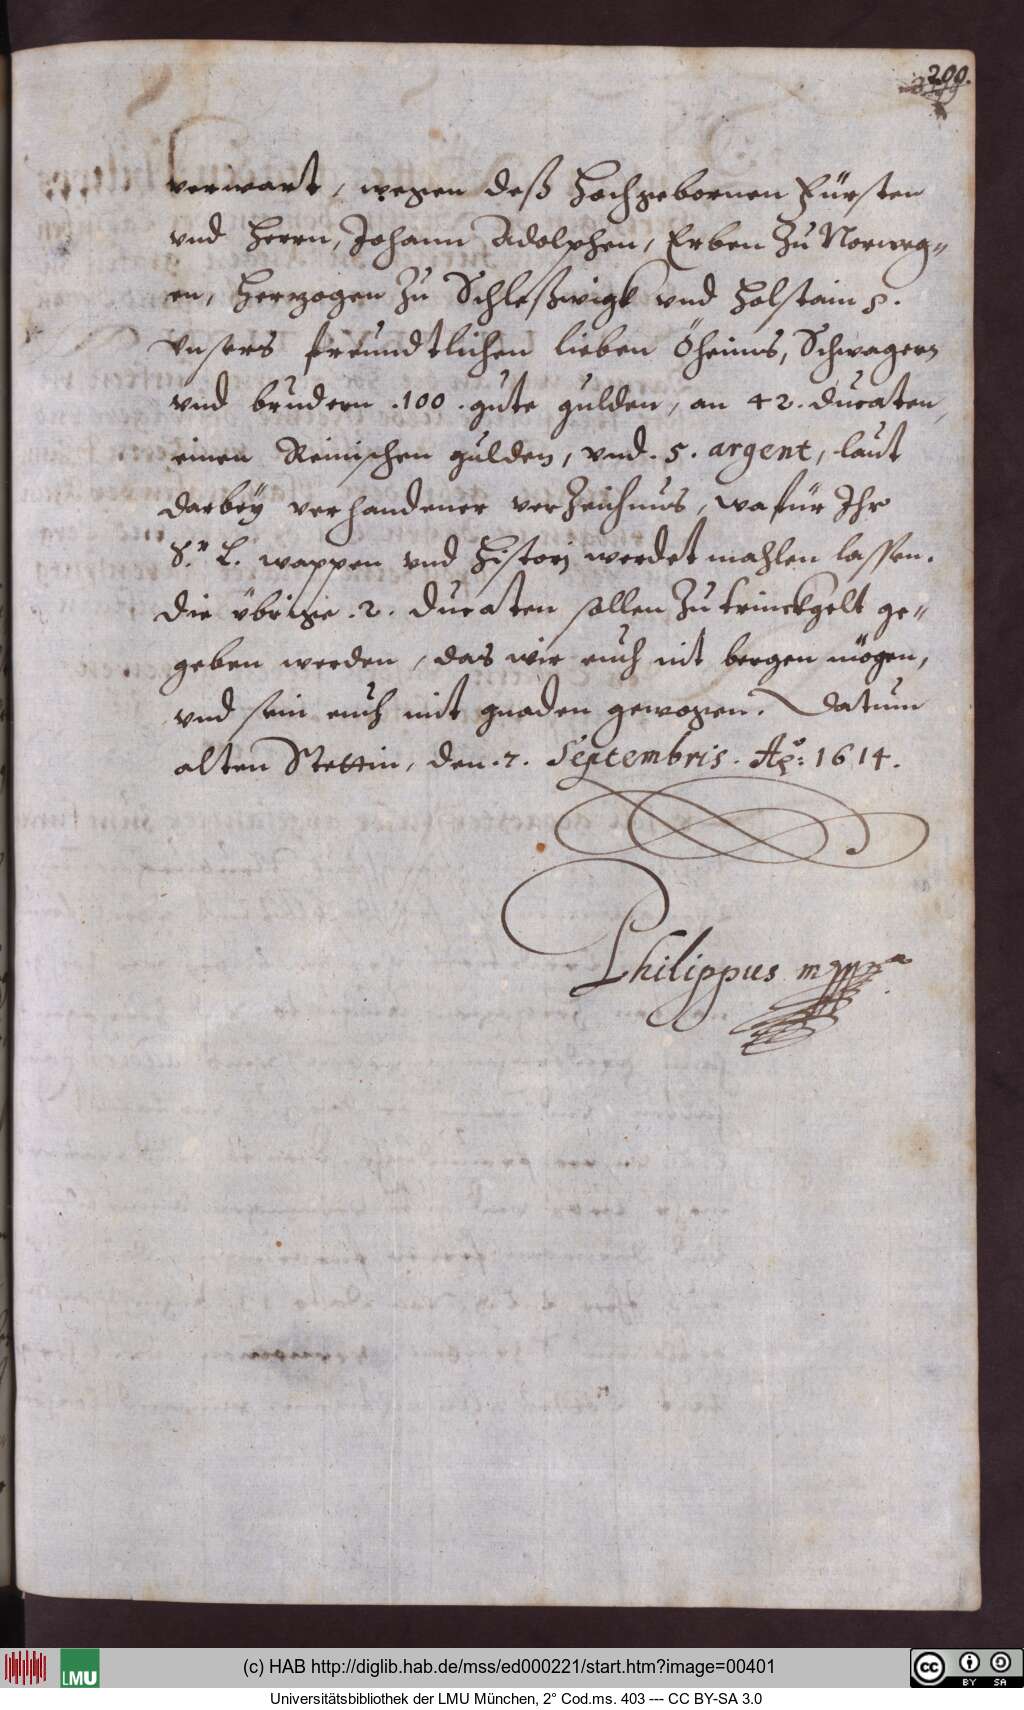 299.
verwart, wegen deß Hochgebornen Fürsten
vnd Herrn, Johann Adolphen, Erben Zu Norweg=
en, Hertzogen Zu Schleßwigk vnd Holstain p.
Vnsers freundtlichen lieben Öheims, Schwagern
vnd brudern .100. gute gulden, an 42. ducaten,
einen Reinischen gulden, vnd. 5. argent, laut
darbey verhandener verZeichnus, wafür Ihr
S.r L. wappen vnd Histori werdet mahlen lassen.
Die übrige .2. ducaten sollen Zu trinckgelt ge=
geben werden, das wir euch nit bergen mögen,
vnd sein euch mit gnaden gewogen. Datum
alten Stettin, den. 7. Septembris. Ao: 1614.
Philippus
(c) HAB http://diglib.hab.de/mss/ed000221/start.htm?image=00401
LMU
cc BY SA
Universitätsbibliothek der LMU München, 2° Cod.ms. 403 --- CC BY-SA 3.0